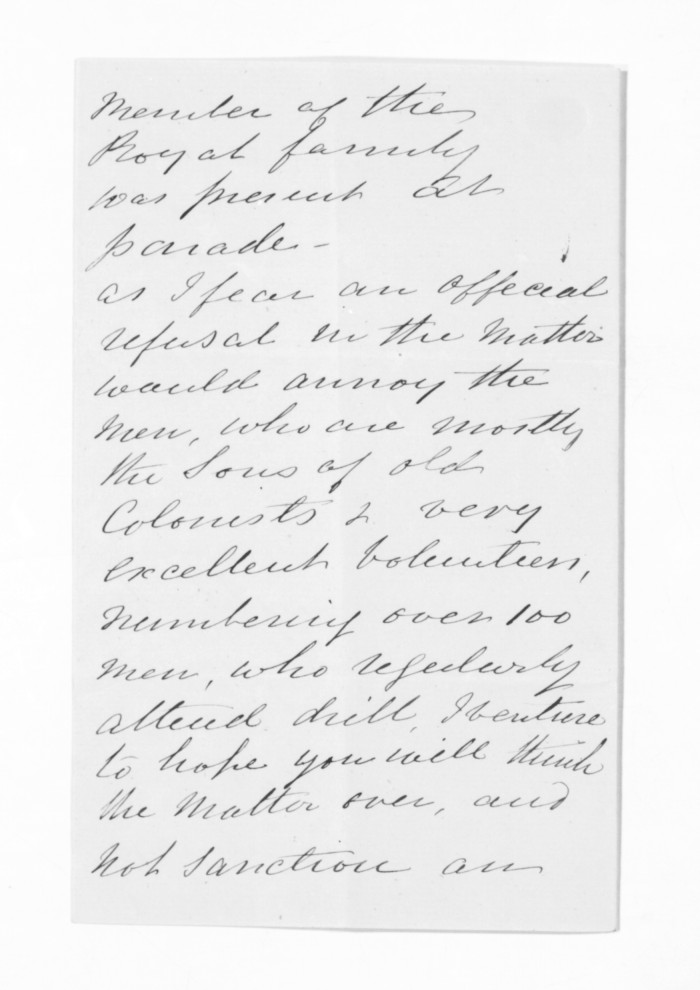 Member of the
Royal family
was present at
parade -
as I fear an official
refusal in the matter
would annoy the
men, who are mostly
the Sons of old
Colonists & very
excellent Volunteers,
numbering over 100
men, who regularly
attend drill, I venture
to hope you will think
the matter over, and
not sanction an